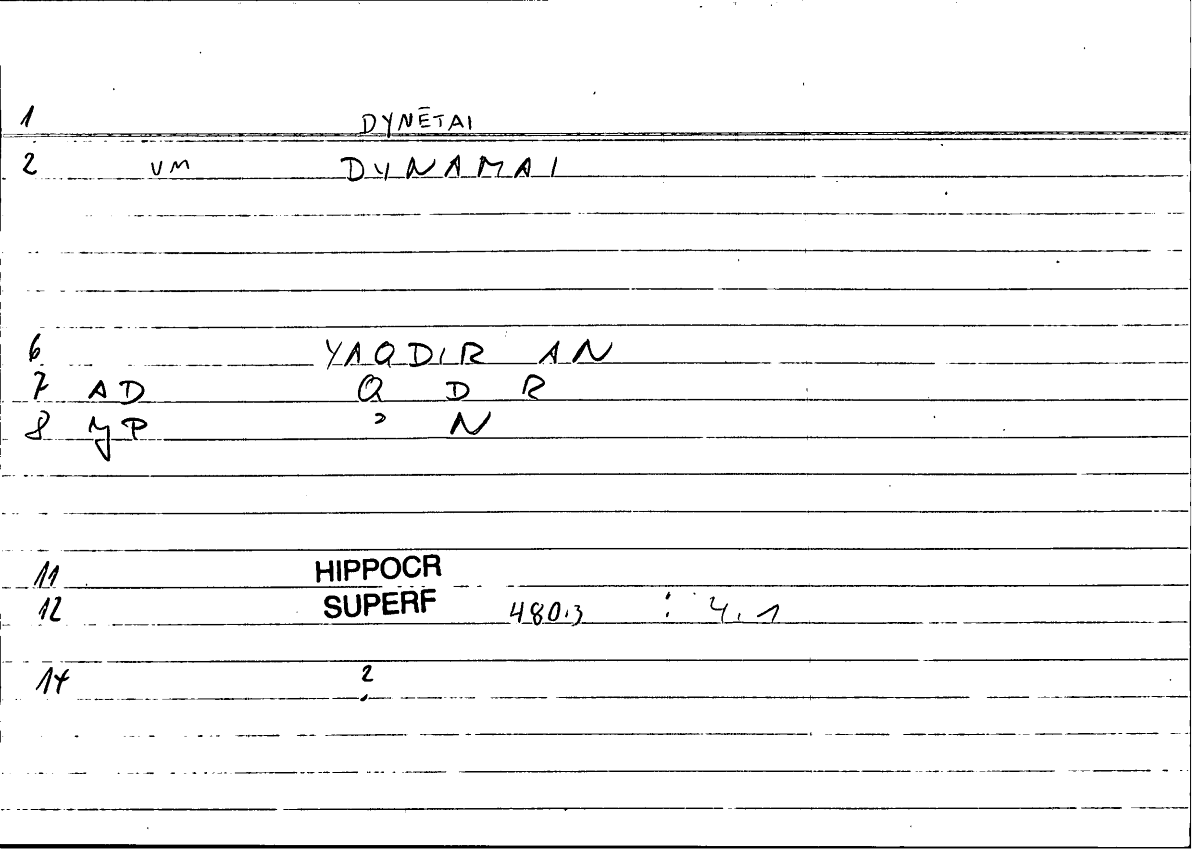 1 DYNĒTAI
2 VM DYNAMAI
6 YAQDIR AN
7 AD Q D R
8 yP ʾ N
11 HIPPOCR
12 SUPERF 480.3 : 4.1
14 2